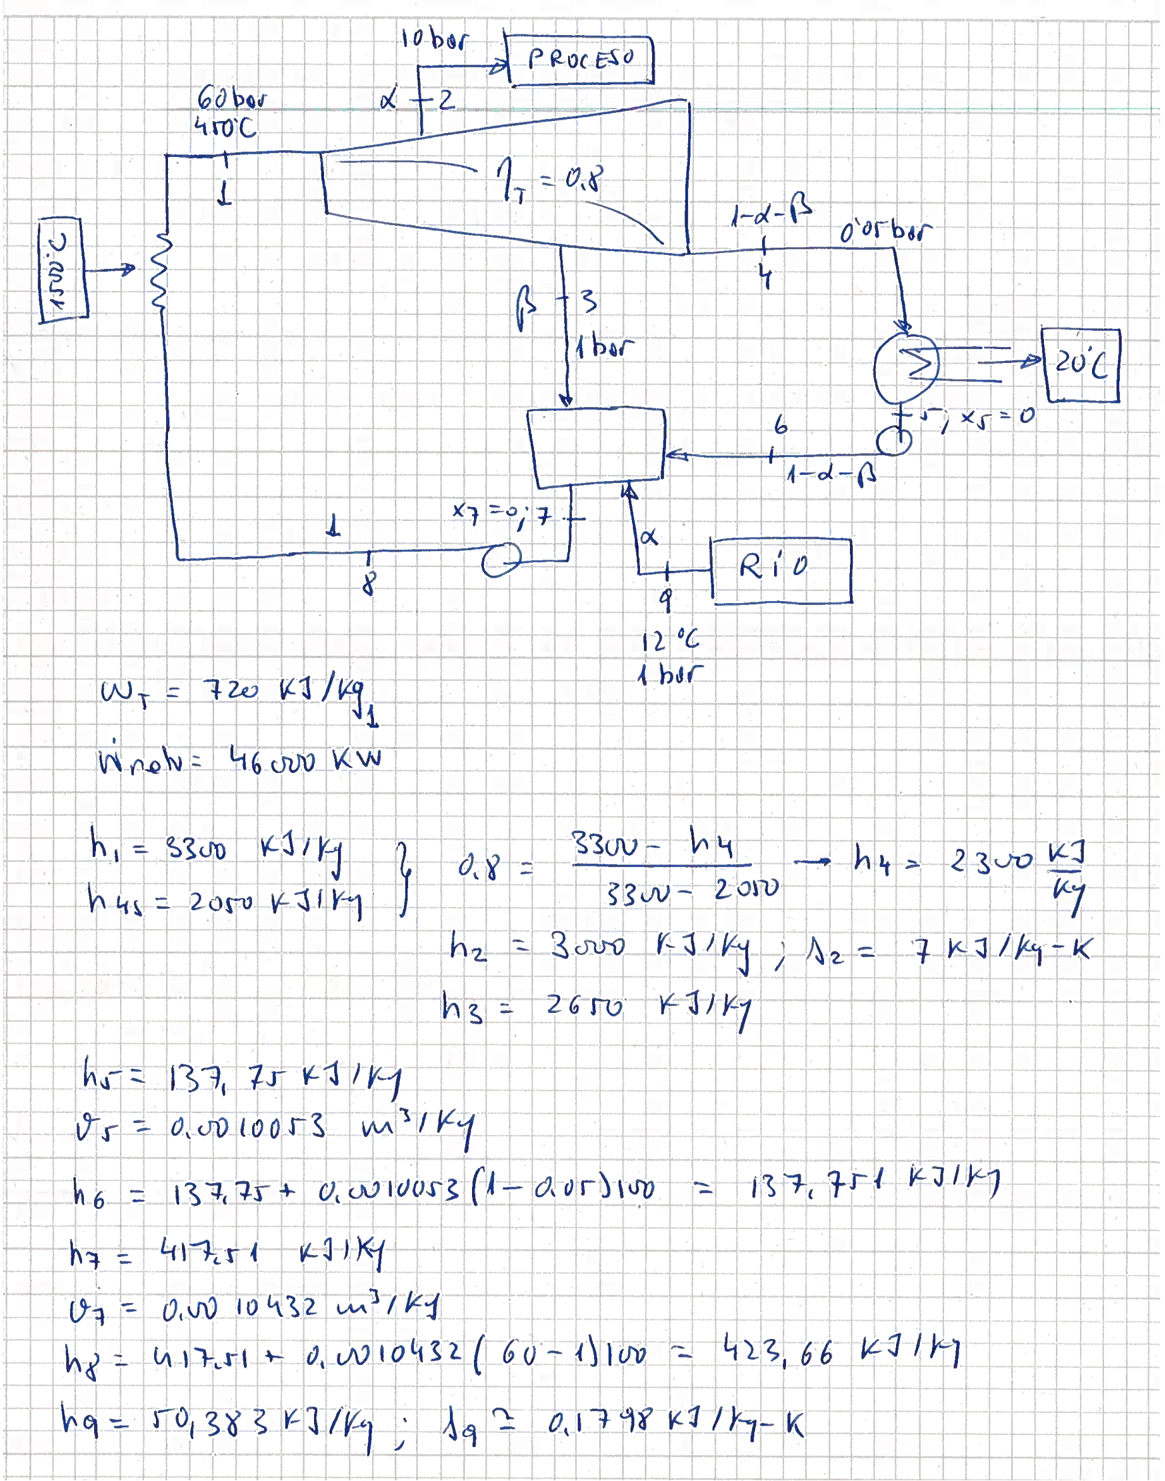 10 bar
PROCESO
α 2
60 bar
450°C
1
η_T = 0.8
1500°C
1-α-β
0'05 bar
4
β 3
1 bar
20°C
5; x₅ = 0
6
1-α-β
x₇ = 0; 7
1
8
α
RÍO
9
12 °C
1 bar
w_T = 720 KJ/kg₁
Ẇneto = 46000 KW
h₁ = 3300 KJ/kg
h₄ₛ = 2050 KJ/kg
0.8 = (3300 - h₄)/(3300 - 2050) → h₄ = 2300 KJ/kg
h₂ = 3000 KJ/kg ; s₂ = 7 KJ/kg-K
h₃ = 2650 KJ/kg
h₅ = 137,75 KJ/kg
v₅ = 0.0010053 m³/kg
h₆ = 137.75 + 0.0010053(1-0.05)100 = 137,751 KJ/kg
h₇ = 417.51 KJ/kg
v₇ = 0.0010432 m³/kg
h₈ = 417.51 + 0.0010432(60-1)100 = 423,66 KJ/kg
h₉ = 50,383 KJ/kg ; s₉ ≃ 0.1798 KJ/kg-K